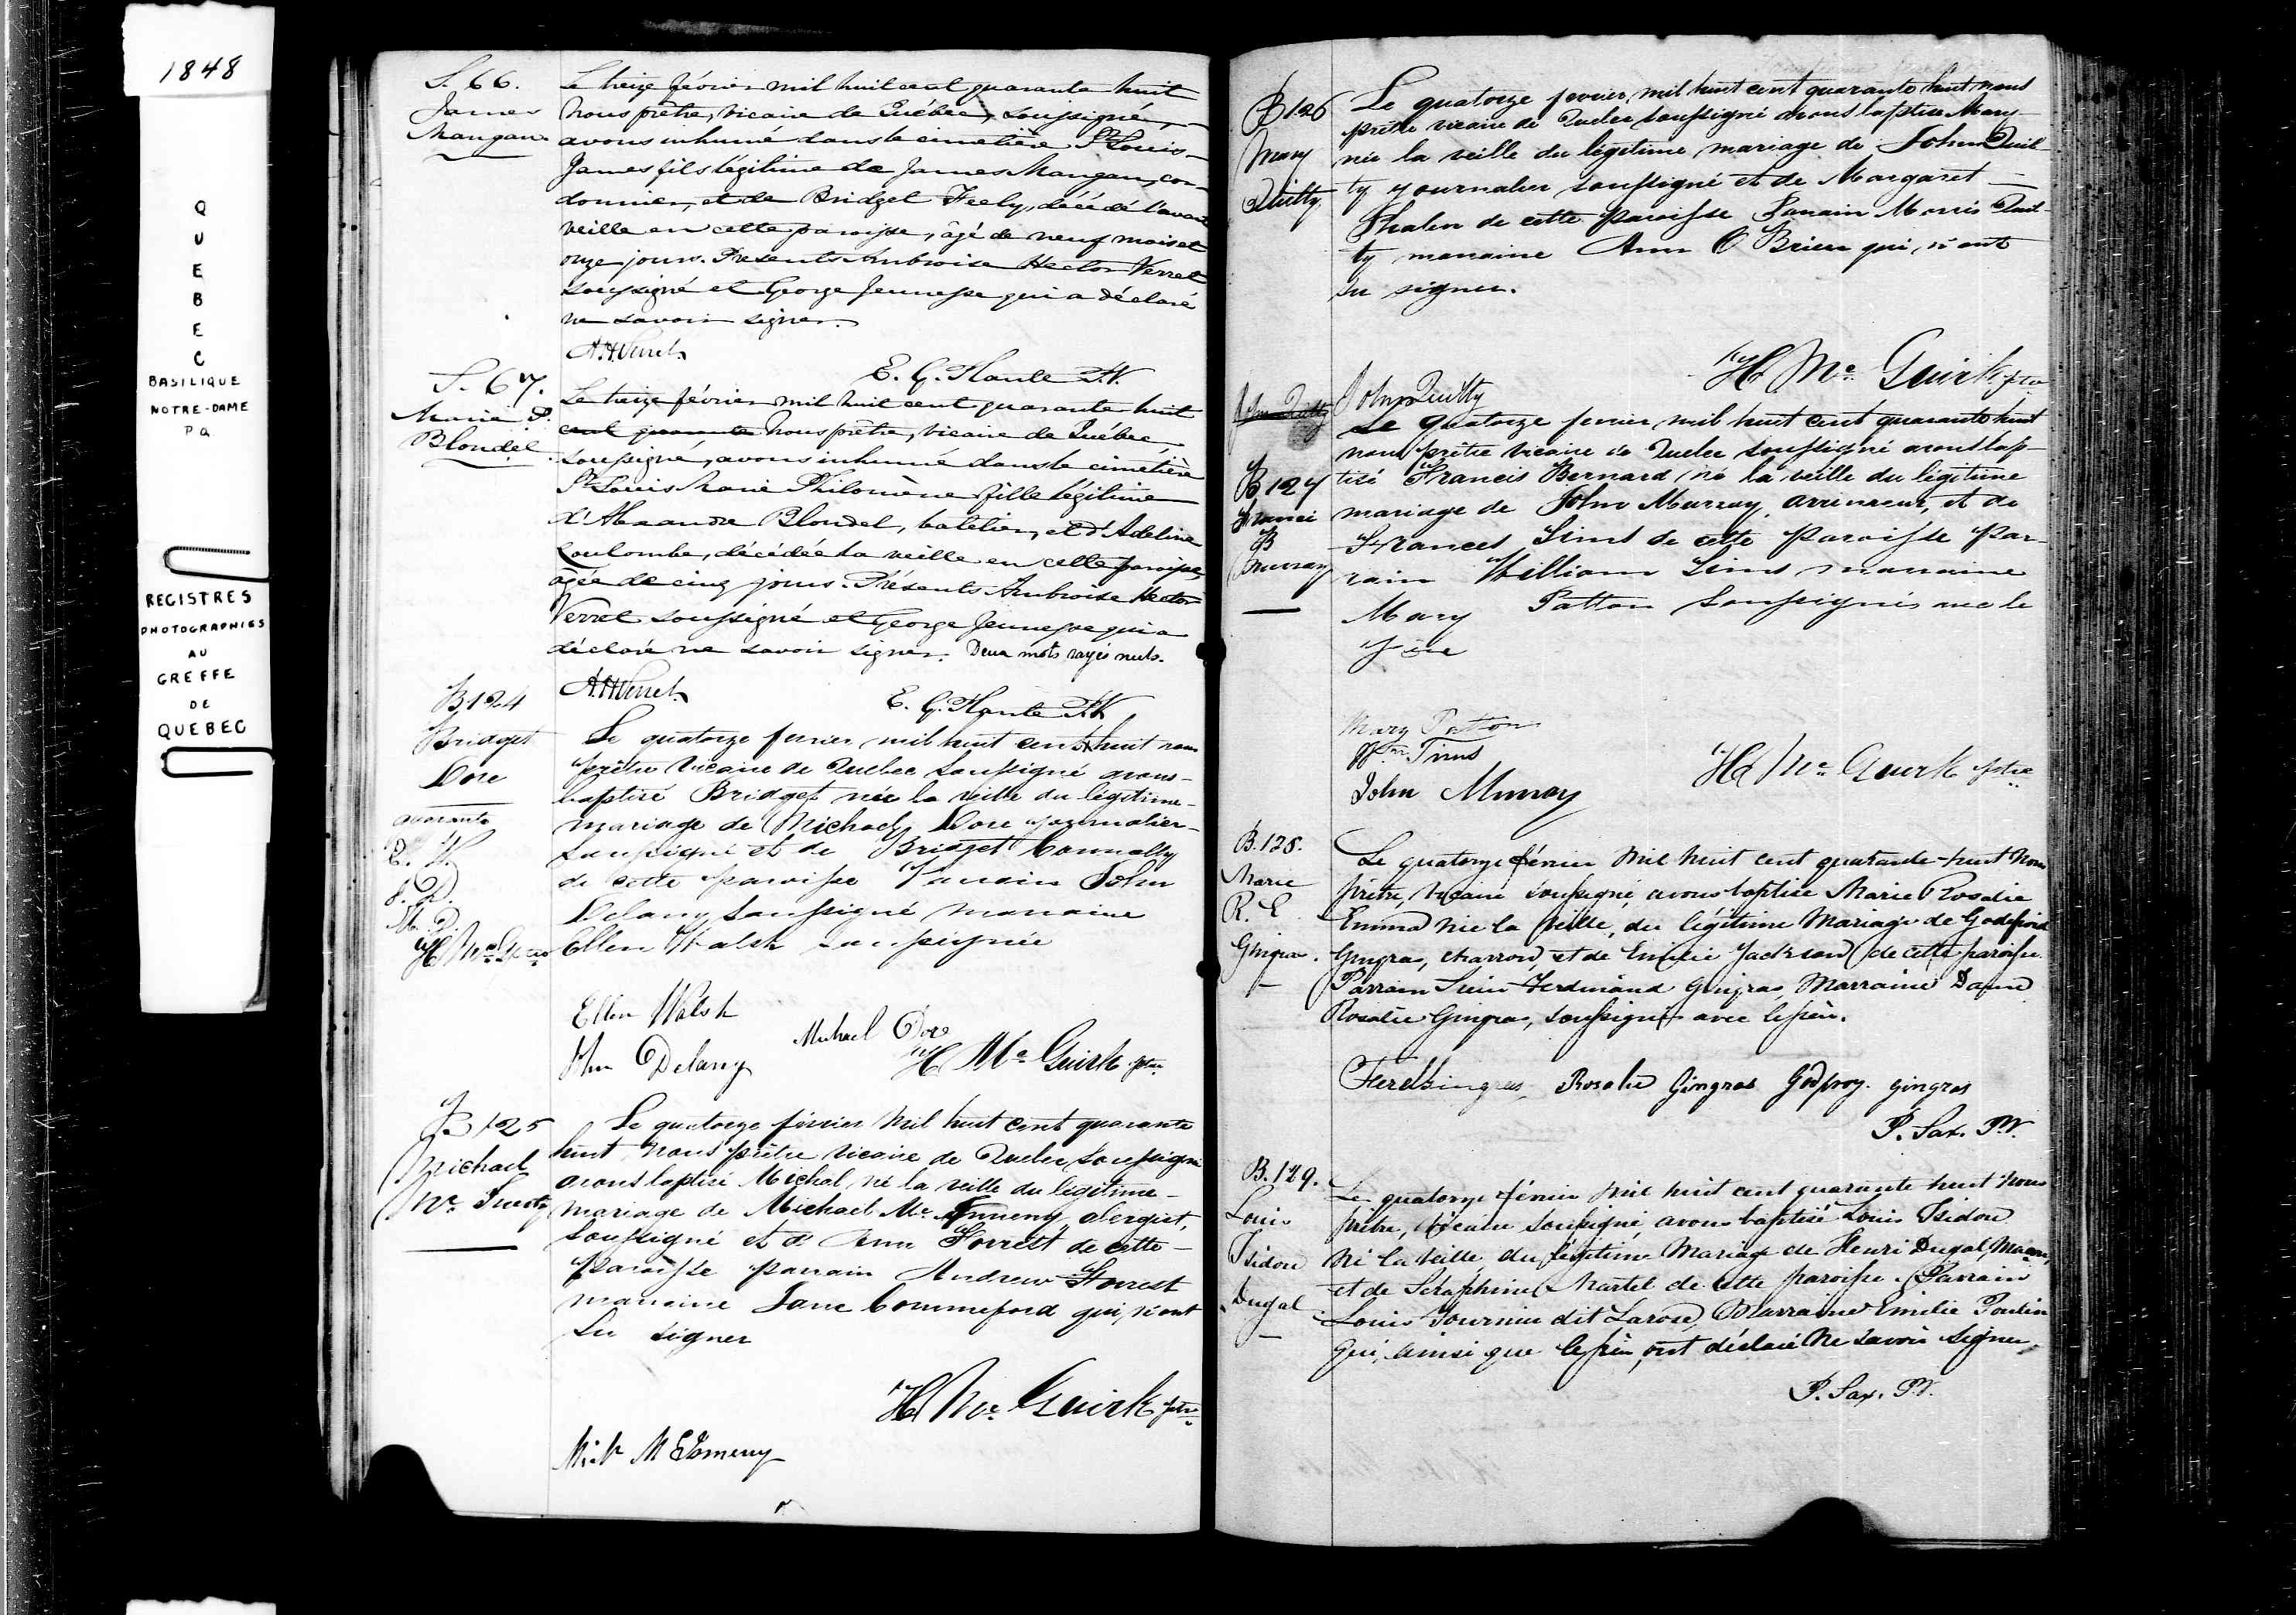 1848
QUEBEC
BASILIQUE
NOTRE-DAME
P Q
REGISTRES
PHOTOGRAPHIES
AU
GREFFE
DE
QUEBEC
S. 66.
James
Mangan
Le treize février mil huit cent quarante huit
nous prêtre, vicaire de Québec, soussigné,
avons inhumé dans le cimetière St Louis
James fils légitime de James Mangan, cor-
donnier, et de Bridget Feely, décédé l'avant
veille en cette paroisse, âgé de neuf mois et
onze jours. Présents Ambroise Hector Verret
soussigné et George Jeunesse qui a déclaré
ne savoir signer.
A.H. Verret
E. G. Plante P.V.
S. 67.
Marie P.
Blondel
Le treize février mil huit cent quarante huit
cent quarante nous prêtre, vicaire de Québec
soussigné, avons inhumé dans le cimetière
St Louis Marie Philomène fille légitime
d'Alexandre Blondel, batelier, et d'Adeline
Coulombe, décédée la veille en cette paroisse,
âgée de cinq jours. Présents Ambroise Hector
Verret soussigné et George Jeunesse qui a
déclaré ne savoir signer. Deux mots rayés nuls.
A.H. Verret
E. G. Plante P.V.
B 124
Bridget
Dore
quarante
E. W.
J. D.
M. D.
Le quatorze fevrier mil huit cent huit nous
prêtre vicaire de Quebec soussigné avons
baptisé Bridget née la veille du légitime
mariage de Michael Dore journalier
soussigné et de Bridget Connolly
de cette paroisse Parrain John
Delany soussigné marraine
Ellen Walsh soussignée
Ellen Walsh
Michael Dore
John Delany
H Mc Guirk ptre
B 125
Michael
Le quatorze février mil huit cent quarante
huit nous prêtre vicaire de Quebec soussigné
avons baptisé Michel né la veille du légitime
mariage de Michael Mc
soussigné et d'Ann Forrest de cette
paroisse parrain Andrew Forrest
marraine Jane Commeford qui n'ont
su signer
H Mc Guirk ptre
B 126
Mary
Quilty
Le quatorze fevrier mil huit cent quarante huit nous
prêtre vicaire de Quebec soussigné avons baptisé Mary
née la veille du légitime mariage de John Quil-
ty journalier soussigné et de Margaret
Phalen de cette paroisse Parrain Morris Quil-
ty marraine Ann O'Brien qui n'ont
su signer.
H Mc Guirk ptre
John Quilty
John Quilty
B 127
Franci
B
Murray
Le quatorze fevrier mil huit cent quarante huit
nous prêtre vicaire de Quebec soussigné avons bap-
tisé Francis Bernard né la veille du légitime
mariage de John Murray, arrimeur, et de
Frances Tims de cette paroisse par-
rain William Tims marraine
Mary Patton soussignés avec le
père
Mary Patton
Wm Tims
John Murray
H Mc Guirk ptre
B. 128.
Marie
R. E
Gingras.
Le quatorze février mil huit cent quarante-huit nous
prêtre, vicaire soussigné, avons baptisé Marie Rosalie
Emma née la veille, du légitime mariage de Godefroid
Gingras, charron, et de Emilie Jackson de cette paroisse.
Parrain Ferdinand Gingras, Marraine
Rosalie Gingras, soussignés avec le père.
Ferd Gingras, Rosalie Gingras Godfroy. gingras
P. Sax. P.V.
B. 129.
Louis
Isidore
Dugal
Le quatorze février mil huit cent quarante huit nous
prêtre, vicaire soussigné, avons baptisé Louis Isidore
né la veille, du légitime mariage de Henri Dugal, Maçon,
et de Séraphine Martel de cette paroisse. Parrain
Louis Fournier dit Larose, Marraine Emilie Poulin
qui, ainsi que le père, ont déclaré ne savoir signer.
P. Sax. P.V.